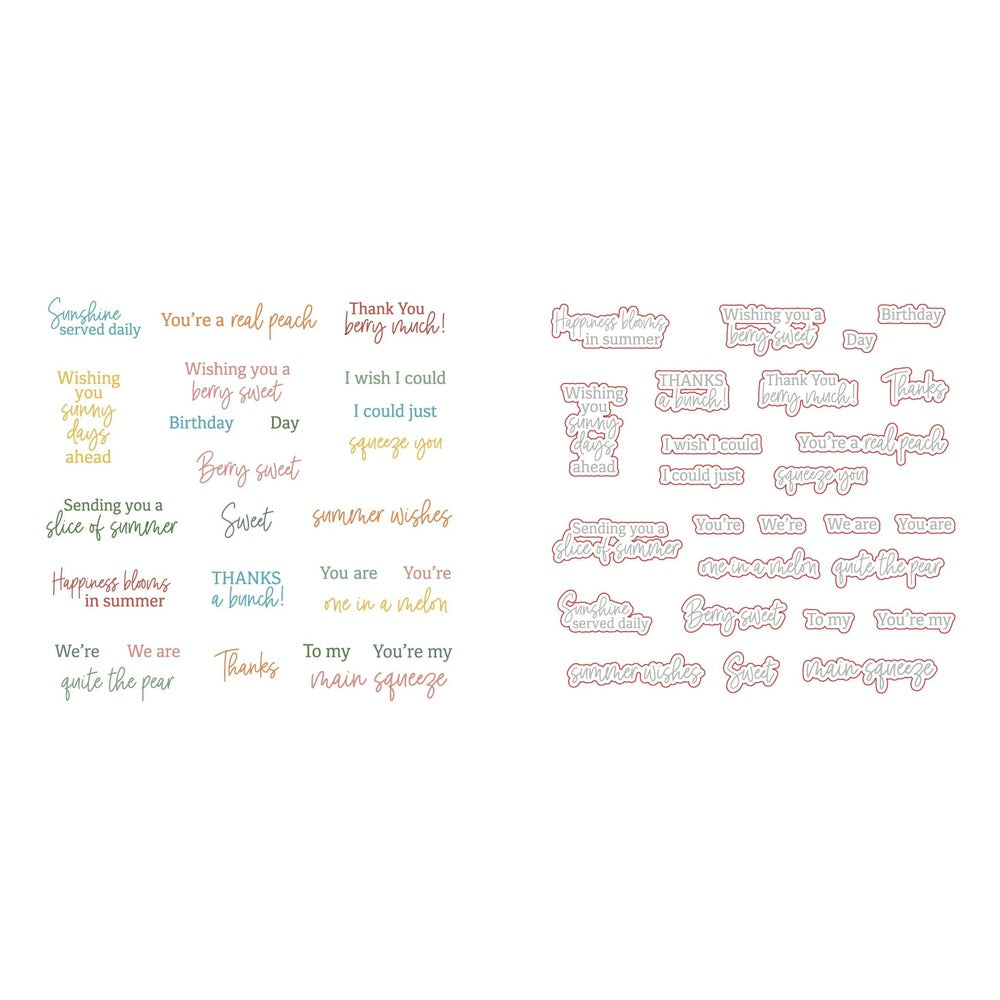 Sunshine
served daily
You're a real peach
Thank You
berry much!
Wishing
you
sunny
days
ahead
Wishing you a
berry sweet
Birthday
Day
Berry sweet
I wish I could
I could just
squeeze you
Sending you a
slice of summer
Sweet
summer wishes
Happiness blooms
in summer
THANKS
a bunch!
You are
You're
one in a melon
We're
We are
quite the pear
Thanks
To my
You're my
main squeeze
Happiness blooms
in summer
Wishing you a
berry sweet
Birthday
Day
Wishing
you
sunny
days
ahead
THANKS
a bunch!
Thank You
berry much!
Thanks
I wish I could
You're a real peach
I could just
squeeze you
Sending you a
slice of summer
You're
We're
We are
You are
one in a melon
quite the pear
Sunshine
served daily
Berry sweet
To my
You're my
summer wishes
Sweet
main squeeze